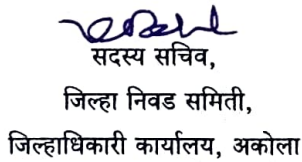 सदस्य सचिव,
जिल्हा निवड समिती,
जिल्हाधिकारी कार्यालय, अकोला